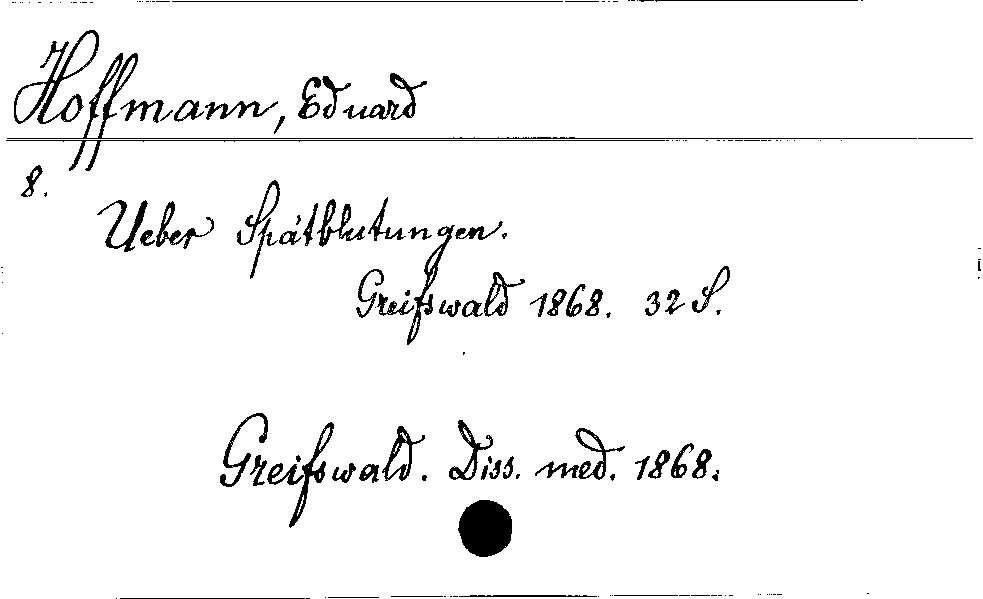 Hoffmann, Eduard
8.
Ueber Spätblutungen.
Greifswald 1868. 32 S.
Greifswald. Diss. med. 1868.